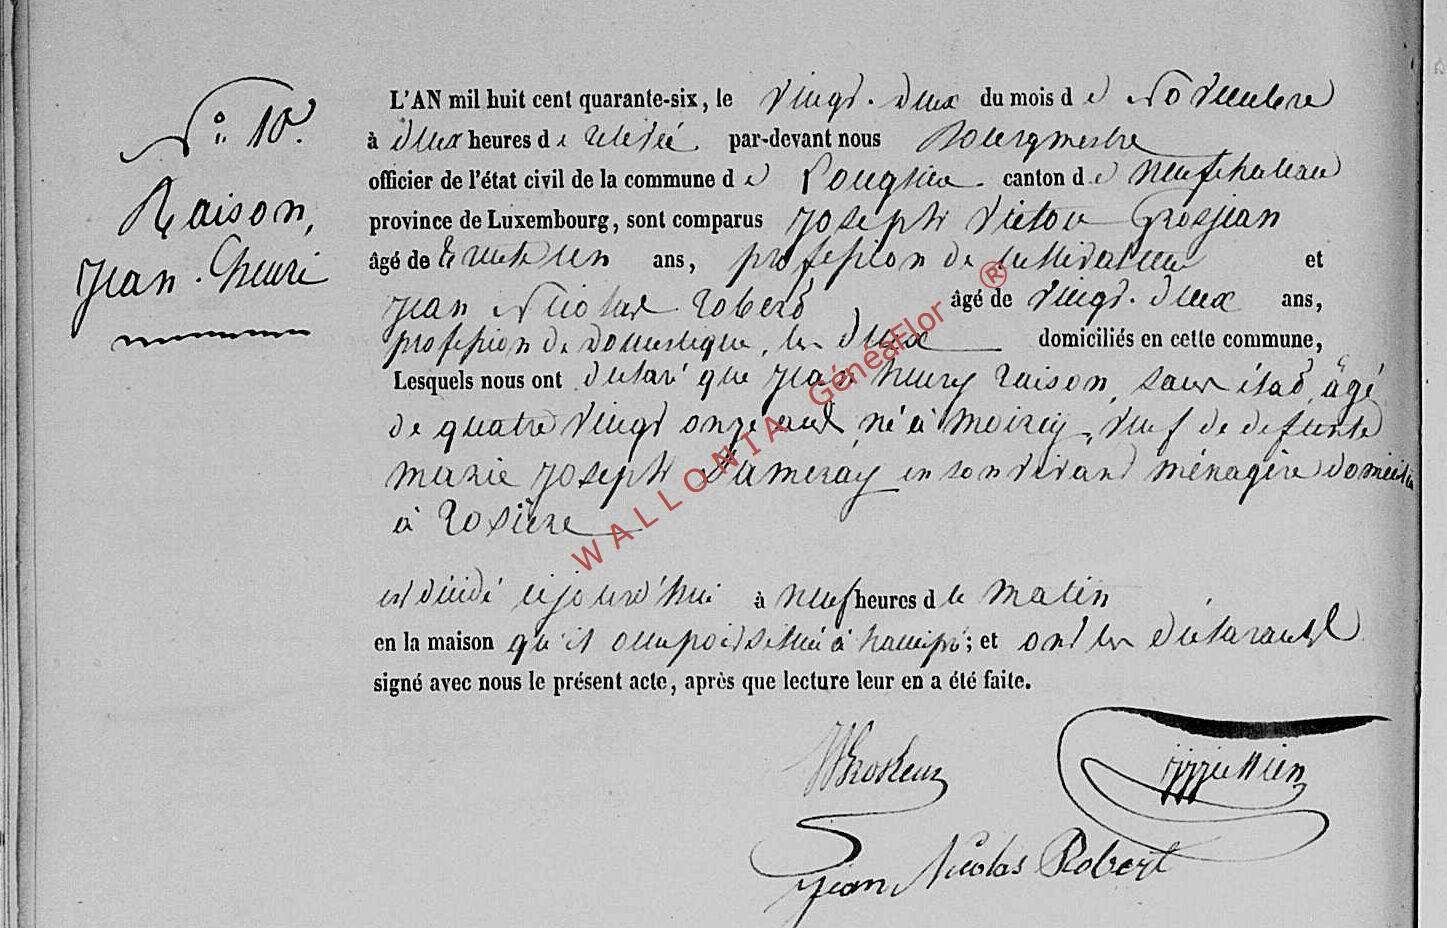 N° 10.
Raison,
Jean-Henri
L'AN mil huit cent quarante-six, le vingt-deux du mois de Novembre
à deux heures de relevée par-devant nous Bourgmestre
officier de l'état civil de la commune de canton de Neufchateau
province de Luxembourg, sont comparus Joseph Victor Grosjean
âgé de trente un ans, profession de cultivateur et
Jean Nicolas Robert âgé de vingt-deux ans,
profession de domestique, les deux domiciliés en cette commune,
Lesquels nous ont déclaré que Jean henry raison, sans état, âgé
de quatre vingt onze ans, né à moircy, veuf de defunte
marie Joseph Lameray en son vivant ménagère domiciliée
à rosière
est décédé cejourd'hui à neuf heures de le matin
en la maison qu'il occupoit située à ; et ont les déclarants
signé avec nous le présent acte, après que lecture leur en a été faite.
Jean Nicolas Robert
WALLONIA GénéaFlor ®